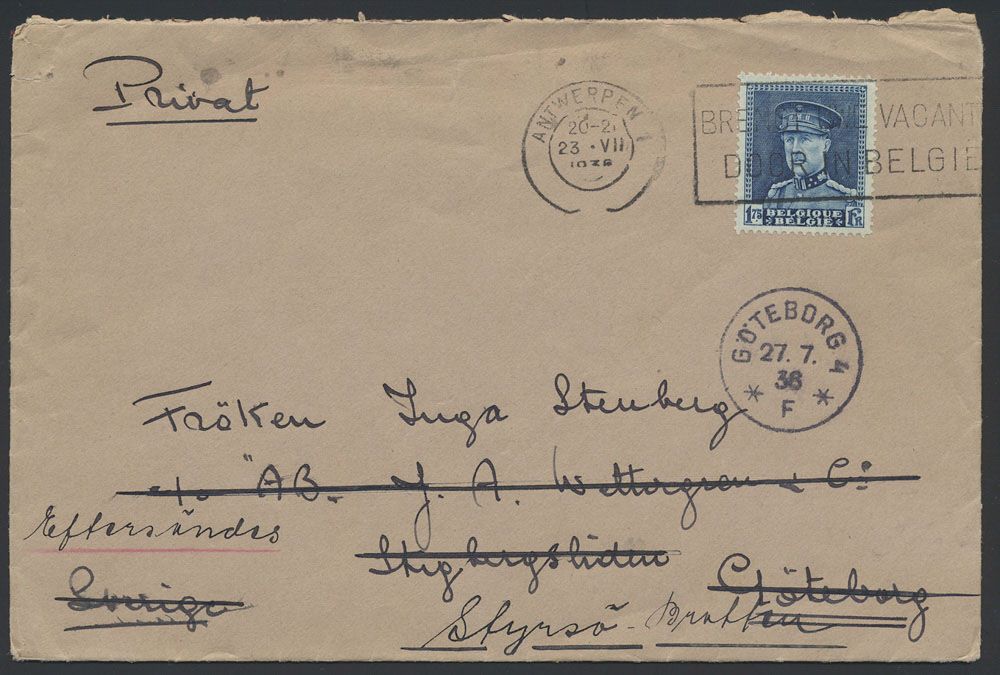 Privat
ANTWERPEN 1
20-21
23 · VII
1936
BRE VACANT
DOOR IN BELGIË
1.75 BELGIQUE FR
BELGIË
GÖTEBORG 4
27. 7.
36
* F *
Fröken Inga Stenberg
c/o "AB. J. A. Wettergren & Co
Eftersändes
Stigbergsliden
Sverige
Göteborg
Styrsö - Bratten